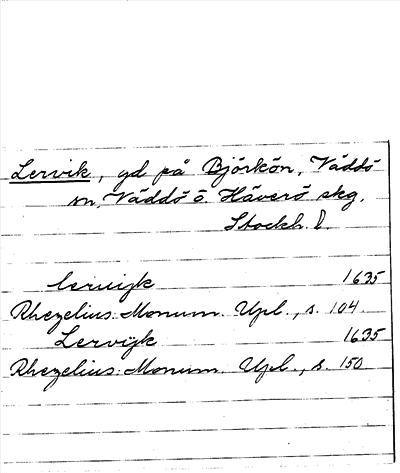 Lervik, gd på Björkön, Väddö
sn, Väddö o. Häverö skg,
Stockh. l.
lervijk 1635
Rhezelius: Monum. Upl., s. 104.
Lervijk 1635
Rhezelius: Monum. Upl., s. 150